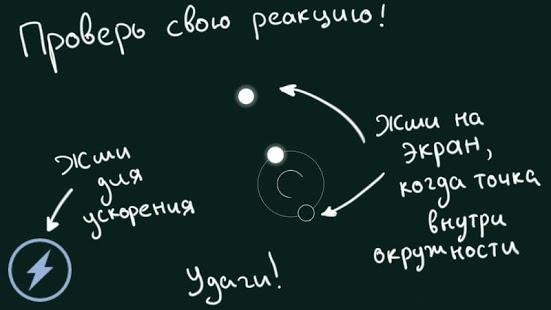 Проверь свою реакцию!
Жми на
экран,
когда точка
внутри
окружности
Жми
для
ускорения
Удачи!